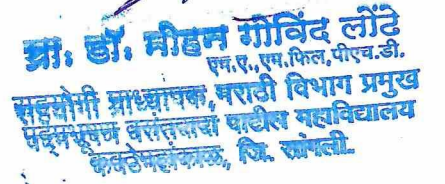 प्रा. डॉ. मोहन गोविंद लोंढे
एम.ए.,एम.फिल,पीएच.डी.
सहयोगी प्राध्यापक, मराठी विभाग प्रमुख
पद्मभूषण वसंतदादा पाटील महाविद्यालय
कवठेमहांकाळ, जि. सांगली.